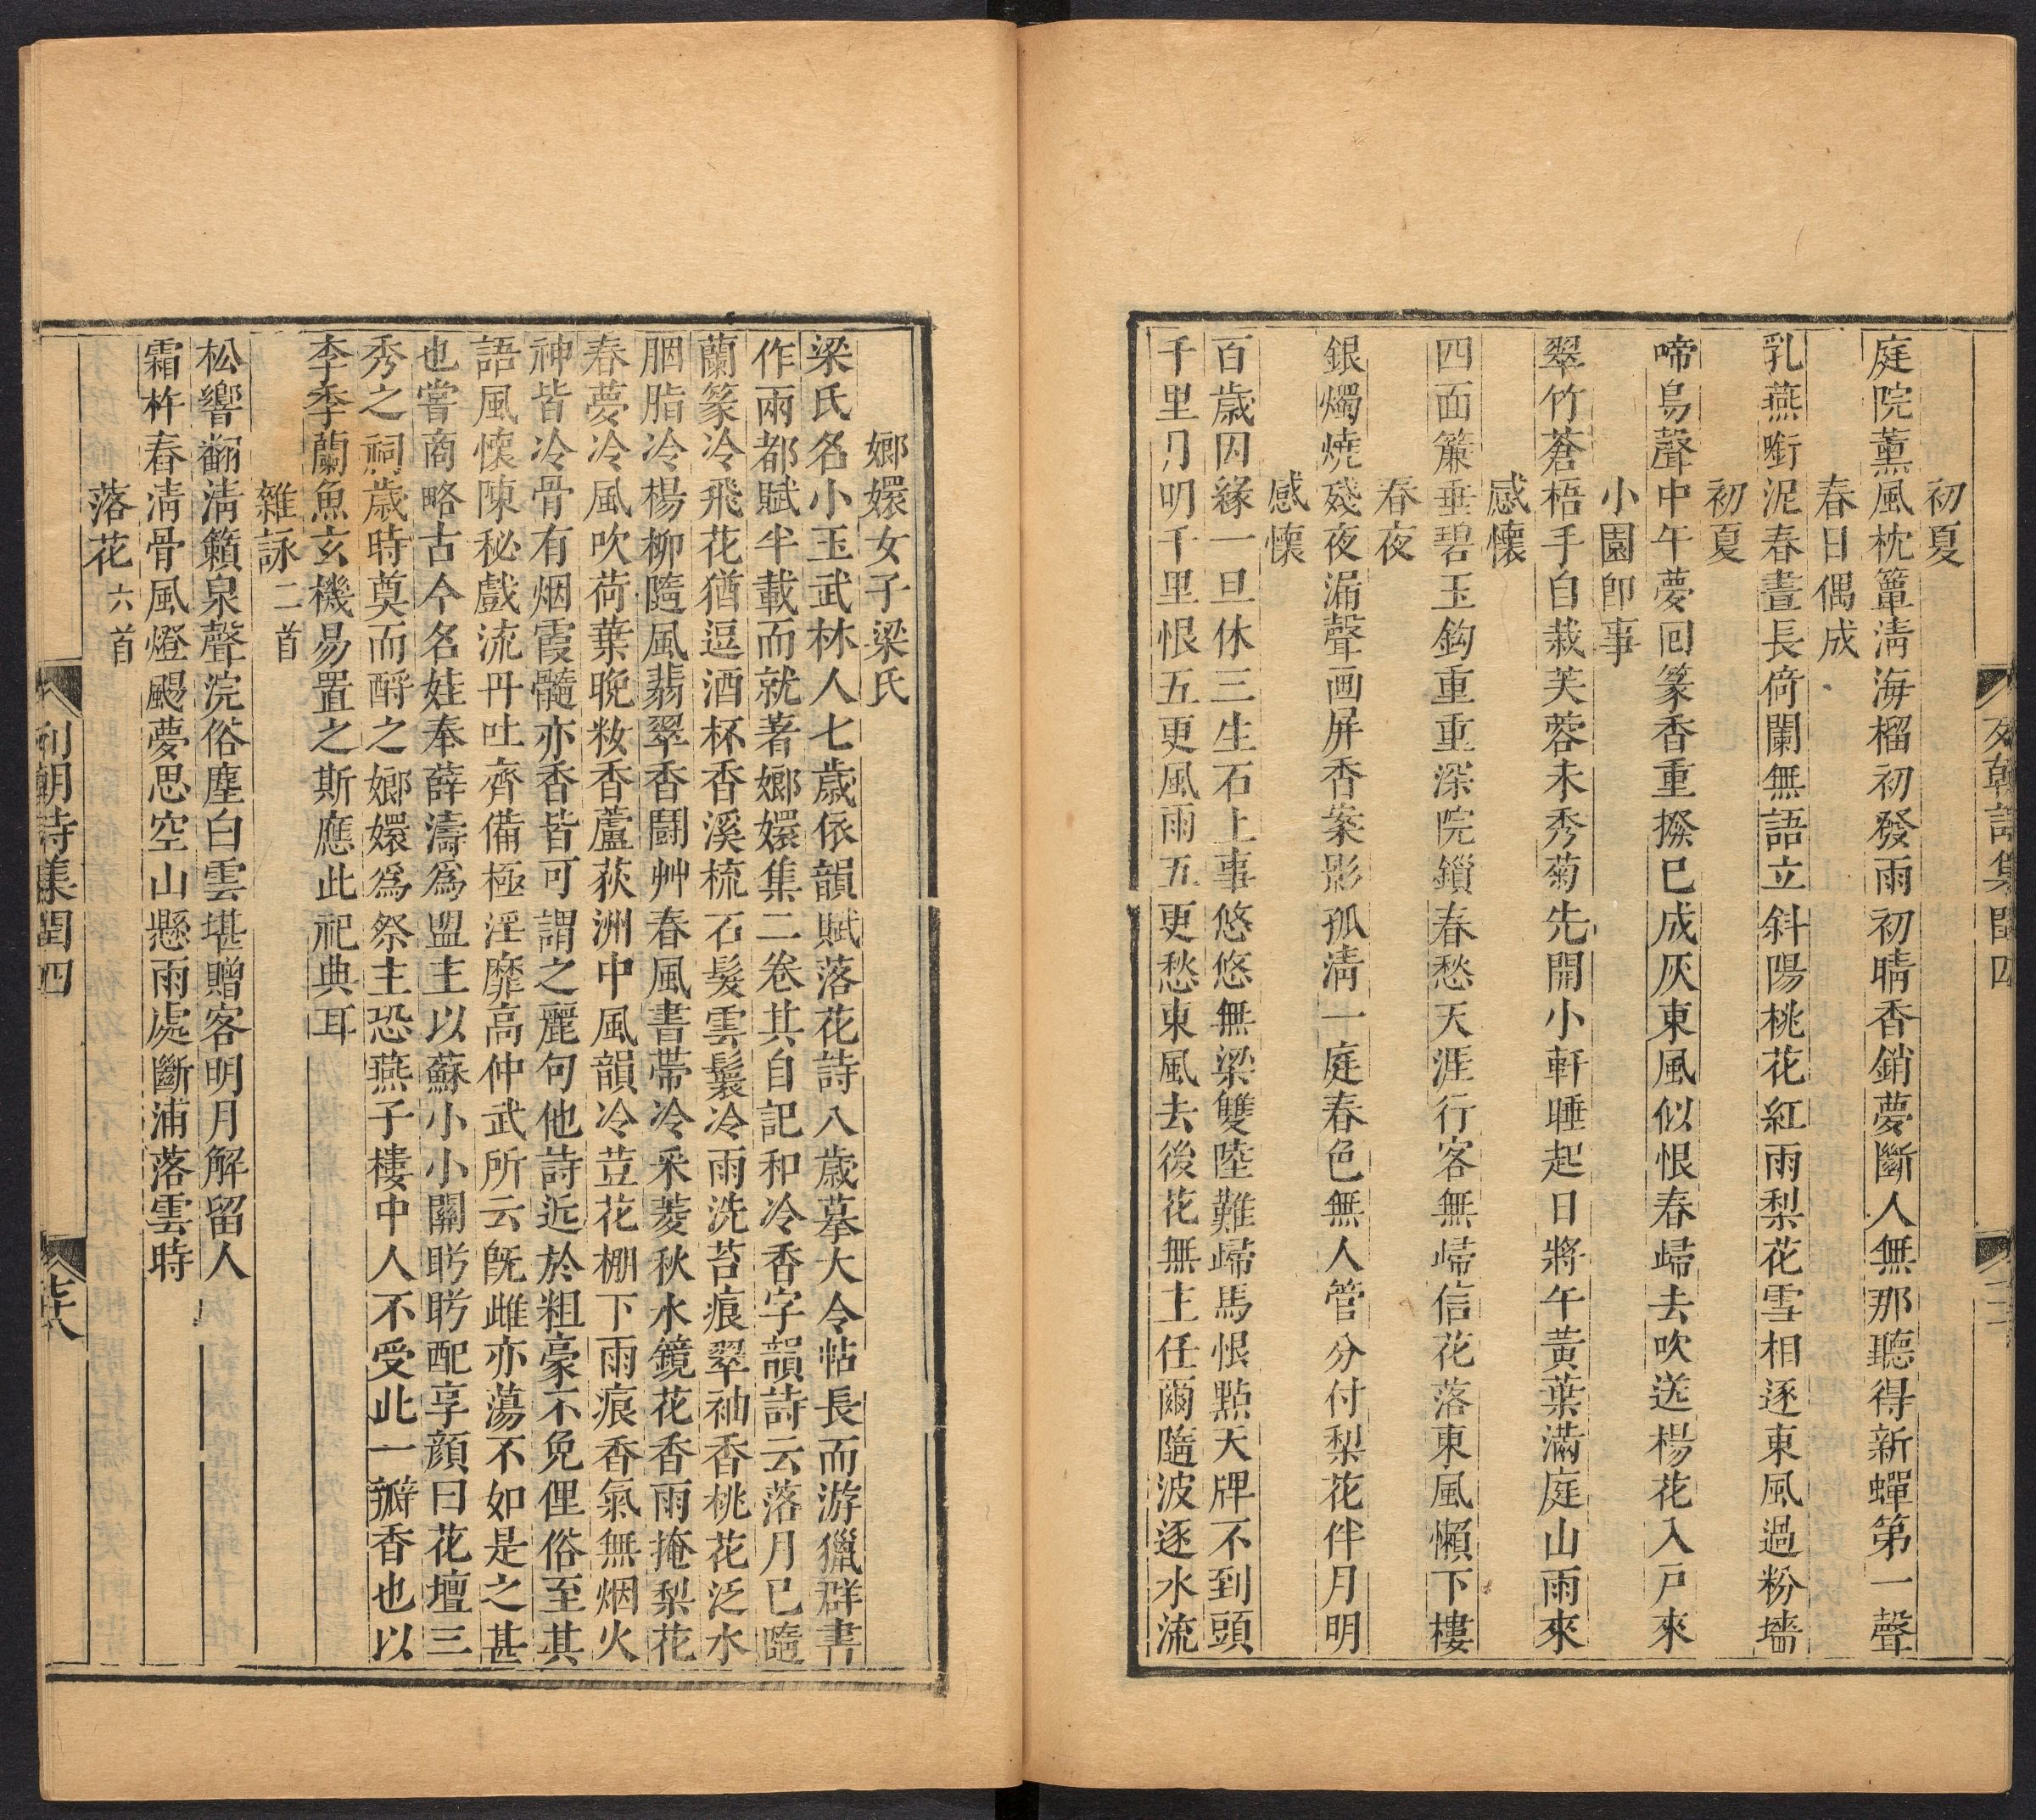 初夏
庭院薰風枕簟淸海榴初發雨初晴香銷夢斷人無那聽得新蟬第一聲
春日偶成
乳燕啣泥春晝長倚闌無語立斜陽桃花紅雨梨花雪相逐東風過粉墻
初夏
啼鳥聲中午夢囘篆香重撥已成灰東風似恨春歸去吹送楊花入戸來
小園卽事
翠竹蒼梧手自栽芙蓉未秀菊先開小軒睡起日將午黃葉滿庭山雨來
感懷
四面簾垂碧玉鈎重重深院鎖春愁天涯行客無歸信花落東風懶下樓
春夜
銀燭燒殘夜漏聲画屏香案影孤淸一庭春色無人管分付梨花伴月明
感懷
百歲因緣一旦休三生石上事悠悠無梁雙陸難歸馬恨點天牌不到頭
千里月明千里恨五更風雨五更愁東風去後花無主任爾隨波逐水流
列朝詩集閏四
嫏嬛女子梁氏
梁氏名小玉武林人七歲依韻賦落花詩八歲摹大令帖長而游獵群書
作兩都賦半載而就著嫏嬛集二卷其自記和冷香字韻詩云落月已隨
蘭篆冷飛花猶逗酒杯香溪梳石髮雲鬟冷雨洗苔痕翠袖香桃花泛水
胭脂冷楊柳隨風翡翠香鬪艸春風書帶冷采菱秋水鏡花香雨掩梨花
春夢冷風吹荷葉晚妝香蘆荻洲中風韻冷荳花棚下雨痕香氣無烟火
神皆冷骨有烟霞髓亦香皆可謂之麗句他詩近於粗豪不免俚俗至其
語風懷陳秘戲流丹吐齊備極淫靡高仲武所云旣雌亦蕩不如是之甚
也嘗商略古今名娃奉薛濤爲盟主以蘇小小關盻盻配享顏曰花壇三
秀之祠歲時奠而酹之嫏嬛爲祭主恐燕子樓中人不受此一瓣香也以
李季蘭魚玄機易置之斯應此祀典耳
雜詠二首
松響翻淸籟泉聲浣俗塵白雲堪贈客明月解留人
霜杵春淸骨風燈颺夢思空山懸雨處斷浦落雲時
落花六首
列朝詩集閏四